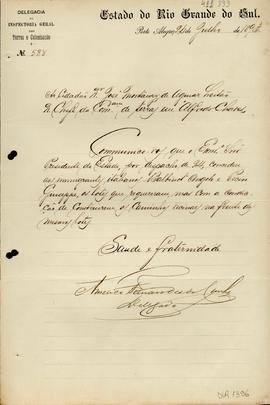 DELEGACIA
DA
INSPECTORIA GERAL
DAS
Terras e Colonisação
Nº 588
Estado do Rio Grande do Sul.
Porto Alegre, de Julho de
Ao Cidadão José Montaury de Aguiar Leitão
Chefe da Com. de terras em Alfredo Chaves
Communico-vos que o Exmo. Snr.
Presidente do Estado, por despacho de 24, concedeu
aos immigrantes italianos Angelo e
Giuseppe, os lotes que requereram, mas com a condi-
ção de construirem os caminhos na frente dos
mesmos lotes.
Saude e fraternidade
Delegado
DLR 1396